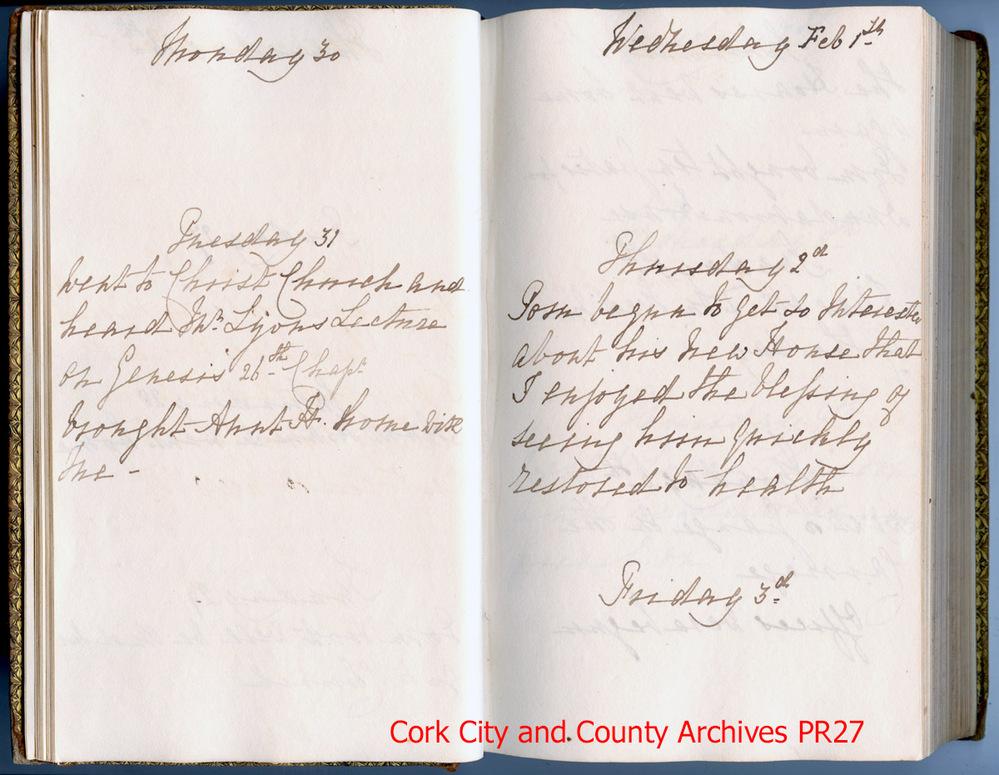 Monday 30
Tuesday 31
went to Christ Church and
heard Mr Lyons Lecture
on Genesis 26th Chapt
brought Aunt H. home with
me -
Wednesday Feb 1th
Thursday 2d
Tom begun to get so Interested
about his New House that
I enjoyed the blessing of
seeing him quickly
restored to health
Friday 3d
Cork City and County Archives PR27